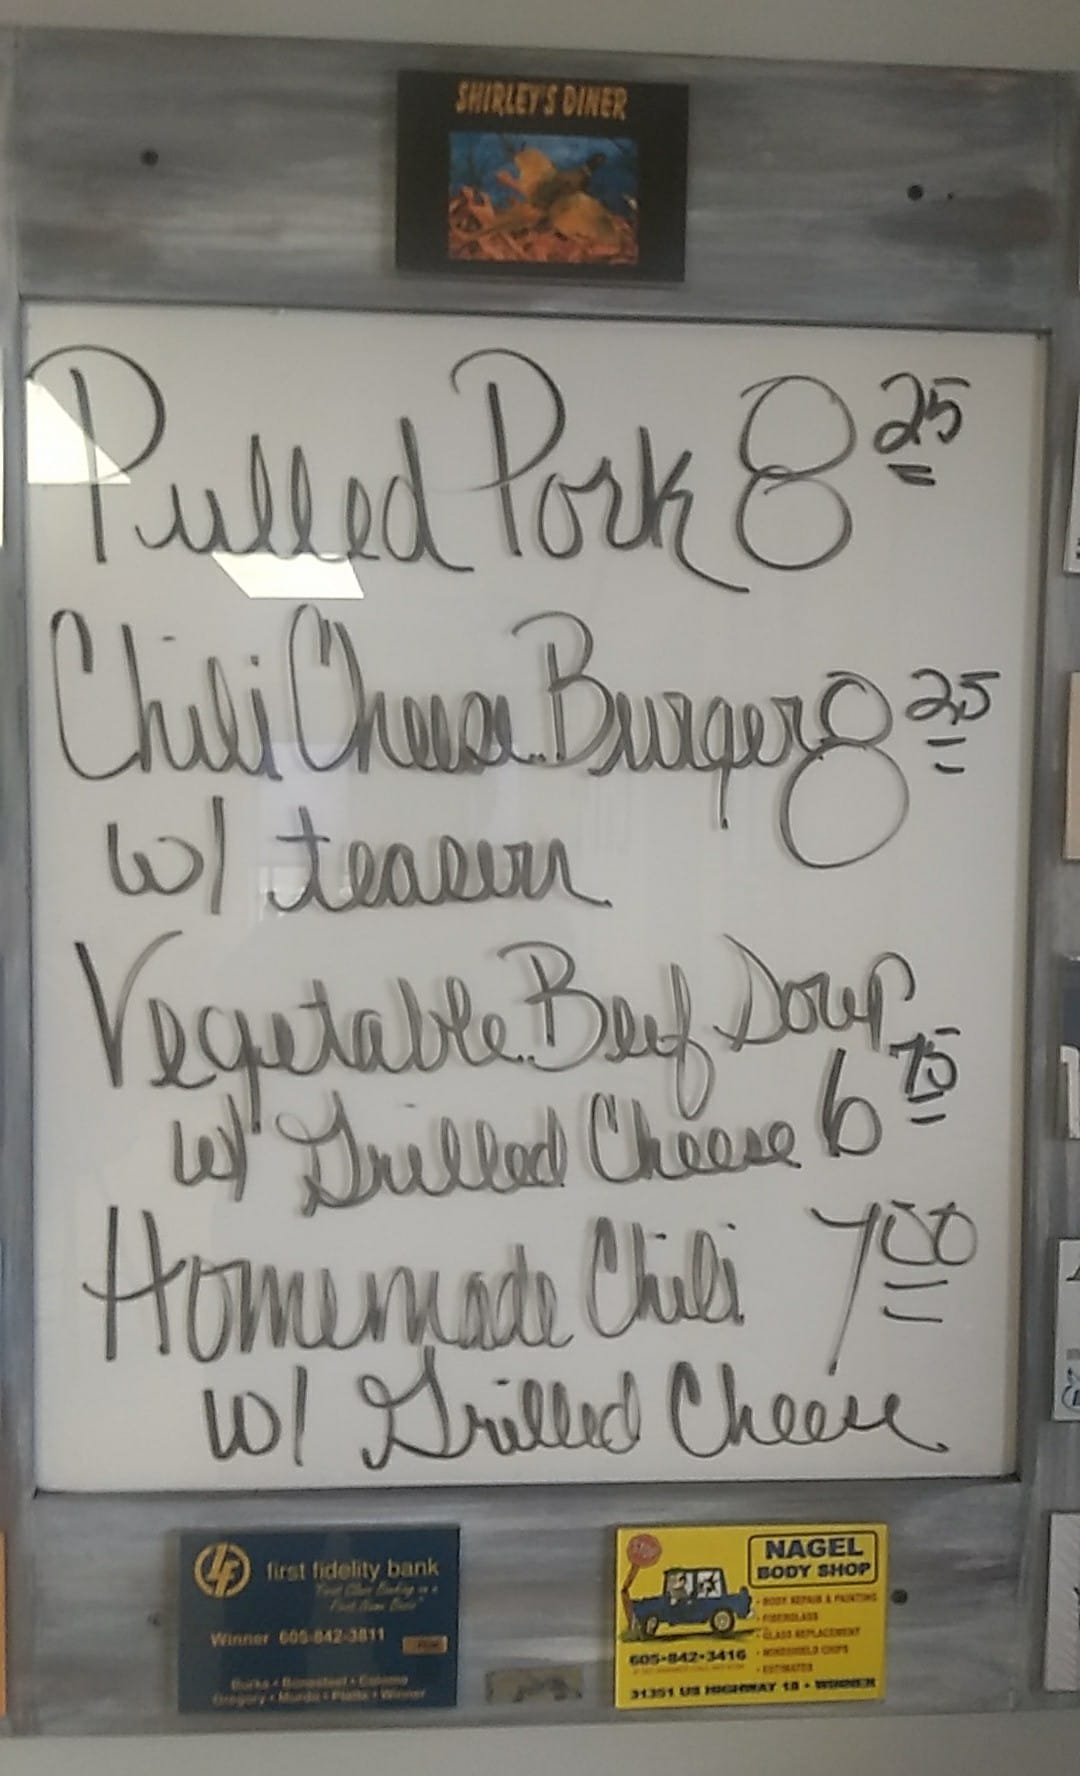 SHIRLEY'S DINER
Pulled Pork 8 25
Chili Cheese Burger 8 25
w/
Vegetable Beef Soup
w/ Grilled Cheese 6 75
Homemade Chili 7 00
w/ Grilled Cheese
first fidelity bank
Winner 605-842-3811
Burke • Bonesteel • Colome
Gregory • Murdo • Platte • Winner
NAGEL
BODY SHOP
• BODY REPAIR & PAINTING
• FIBERGLASS
• GLASS REPLACEMENT
• WINDSHIELD CHIPS
• ESTIMATES
605•842•3416
31351 US HIGHWAY 18 • WINNER